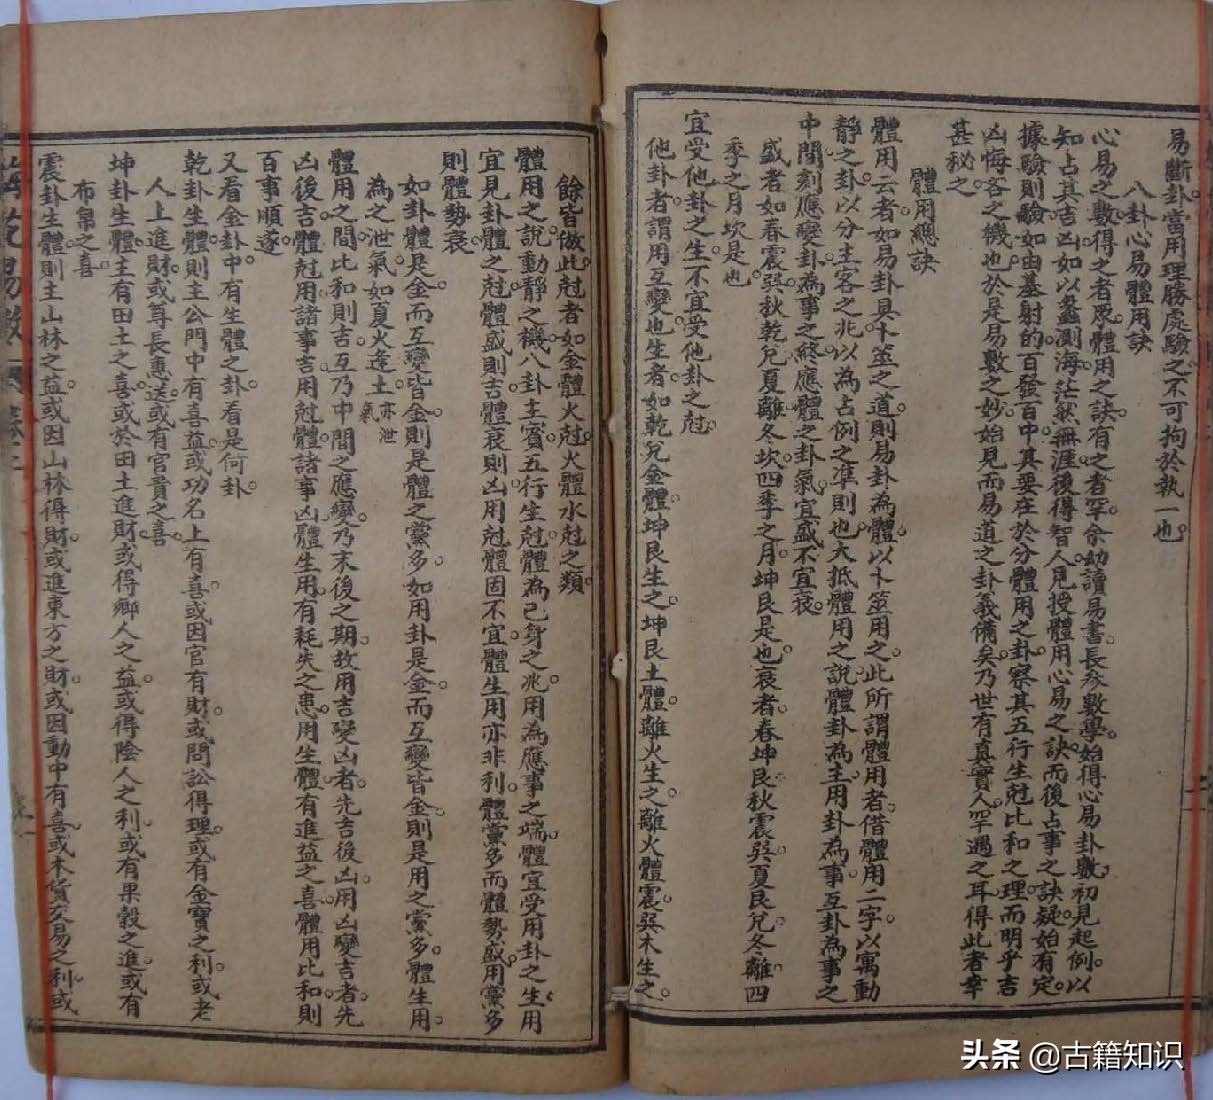 易斷卦當用理勝處驗之不可拘於執一也
八卦心易體用訣
心易之數得之者眾體用之訣有之者罕余幼讀易書長參數學始得心易卦數初見起例以
知占其吉凶如以蠡測海茫然無涯後得智人見授體用心易之訣而後占事之訣疑始有定
據驗則驗如由基射的百發百中其要在於分體用之卦察其五行生尅比和之理而明乎吉
凶悔吝之機也於是易數之妙始見而易道之卦義備矣乃世有真實人罕遇之耳得此者幸
甚秘之
體用總訣
體用云者如易卦具卜筮之道則易卦為體以卜筮用之此所謂體用者借體用二字以寓動
靜之卦以分主客之兆以為占例之準則也大抵體用之說體卦為主用卦為事互卦為事之
中間刻應變卦為事之終應體之卦氣宜盛不宜衰
盛者如春震巽秋乾兌夏離冬坎四季之月坤艮是也衰者春坤艮秋震巽夏艮兌冬離四
季之月坎是也
宜受他卦之生不宜受他卦之尅
他卦者謂用互變也生者如乾兌金體坤艮生之坤艮土體離火生之離火體震巽木生之
餘皆倣此尅者如金體火尅火體水尅之類
體用之說動靜之機八卦主賓五行生尅體為己身之兆用為應事之端體宜受用卦之生用
宜見卦體之尅體盛則吉體衰則凶用尅體固不宜體生用亦非利體黨多而體勢盛用黨多
則體勢衰
如卦體是金而互變皆金則是體之黨多如用卦是金而互變皆金則是用之黨多體生用
為之泄氣如夏火逢土亦泄氣
體用之間比和則吉互乃中間之應變乃末後之期故用吉變凶者先吉後凶用凶變吉者先
凶後吉體尅用諸事吉用尅體諸事凶體生用有耗失之患用生體有進益之喜體用比和則
百事順遂
又看金卦中有生體之卦看是何卦
乾卦生體則主公門中有喜益或功名上有喜或因官有財或問訟得理或有金寶之利或老
人上進財或尊長惠送或有官貴之喜
坤卦生體主有田土之喜或於田土進財或得鄉人之益或得陰人之利或有果穀之進或有
布帛之喜
震卦生體則主山林之益或因山林得財或進東方之財或因動中有喜或木貨交易之利或